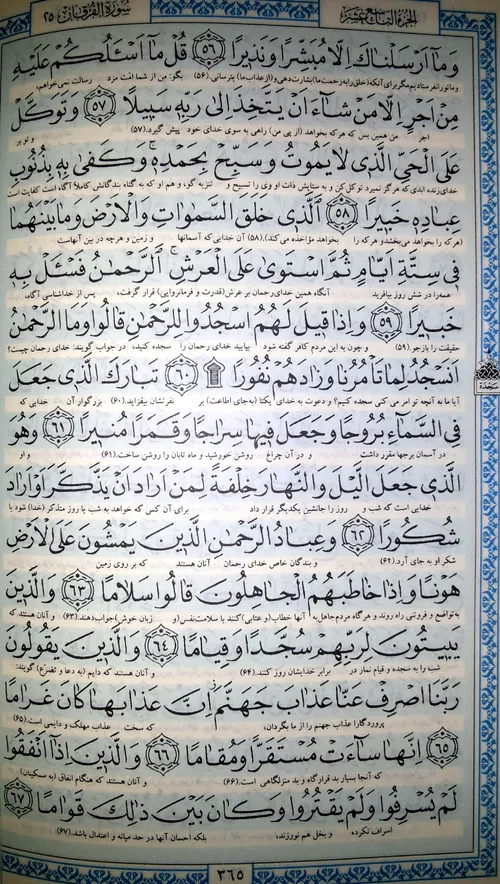 سُورَةُ الْفُرْقَانِ ٢٥
الجزء التاسع عشر
وَمَا أَرْسَلْنَاكَ إِلَّا مُبَشِّرًا وَنَذِيرًا ﴿٥٦﴾ قُلْ مَا أَسْئَلُكُمْ عَلَيْهِ
و ما تو را نفرستادیم مگر برای آنکه (خلق را به رحمت ما) بشارت دهی و (از عذاب ما) بترسانی. (۵۶) بگو: من از شما امت مزد رسالت نمی‌خواهم،
مِنْ أَجْرٍ إِلَّا مَنْ شَاءَ أَنْ يَتَّخِذَ إِلَىٰ رَبِّهِ سَبِيلًا ﴿٥٧﴾ وَتَوَكَّلْ
اجر من همین بس که هر که بخواهد (از پی من) راهی به سوی خدای خود پیش گیرد. (۵۷) و تو بر
عَلَى الْحَيِّ الَّذِي لَا يَمُوتُ وَسَبِّحْ بِحَمْدِهِ وَكَفَىٰ بِهِ بِذُنُوبِ
خدای زنده ابدی که هرگز نمیرد توکل کن و به ستایش ذات او وی را تسبیح و تنزیه گو، و هم او که به گناه بندگانش کاملاً آگاه است کفایت است
عِبَادِهِ خَبِيرًا ﴿٥٨﴾ الَّذِي خَلَقَ السَّمٰوَاتِ وَالْأَرْضَ وَمَا بَيْنَهُمَا
(هر که را بخواهد می‌بخشد و هر که را بخواهد مؤاخذه می‌کند). (۵۸) آن خدایی که آسمانها و زمین و هر چه در بین آنهاست
فِي سِتَّةِ أَيَّامٍ ثُمَّ اسْتَوَىٰ عَلَى الْعَرْشِ الرَّحْمٰنُ فَسْئَلْ بِهِ
همه را در شش روز بیافرید آنگاه همین خدای رحمان بر عرش (قدرت و فرمانروایی) قرار گرفت، پس از خداشناسی آگاه،
خَبِيرًا ﴿٥٩﴾ وَإِذَا قِيلَ لَهُمُ اسْجُدُوا لِلرَّحْمٰنِ قَالُوا وَمَا الرَّحْمٰنُ
حقیقت را بازجو. (۵۹) و چون به این مردم کافر گفته شود بیایید خدای رحمان را سجده کنید، در جواب گویند: خدای رحمان چیست؟
أَنَسْجُدُ لِمَا تَأْمُرُنَا وَزَادَهُمْ نُفُورًا ﴿٦٠﴾ تَبَارَكَ الَّذِي جَعَلَ
آیا ما به آنچه تو امر می کنی سجده کنیم؟ و دعوت به خدای یکتا (به‌جای اطاعت) بر نفرتشان بیفزاید. (۶۰) بزرگوار آن خدایی که
فِي السَّمَاءِ بُرُوجًا وَجَعَلَ فِيهَا سِرَاجًا وَقَمَرًا مُنِيرًا ﴿٦١﴾ وَهُوَ
در آسمان برجها مقرر داشت و در آن چراغ روشن خورشید و ماه تابان را روشن ساخت. (۶۱) و او
الَّذِي جَعَلَ اللَّيْلَ وَالنَّهَارَ خِلْفَةً لِمَنْ أَرَادَ أَنْ يَذَّكَّرَ أَوْ أَرَادَ
خدایی است که شب و روز را جانشین یکدیگر قرار داد برای آن کس که خواهد به شب یا روز متذکر (خدا) شود یا
شُكُورًا ﴿٦٢﴾ وَعِبَادُ الرَّحْمٰنِ الَّذِينَ يَمْشُونَ عَلَى الْأَرْضِ
شکر او به جای آرد. (۶۲) و بندگان خاص خدای رحمان آنان هستند که بر روی زمین
هَوْنًا وَإِذَا خَاطَبَهُمُ الْجَاهِلُونَ قَالُوا سَلَامًا ﴿٦٣﴾ وَالَّذِينَ
به تواضع و فروتنی راه روند، و هرگاه مردم جاهل به آنها خطاب (و عتابی) کنند با سلامت نفس (و زبان خوش) جواب دهند. (۶۳) و آنان هستند که
يَبِيتُونَ لِرَبِّهِمْ سُجَّدًا وَقِيَامًا ﴿٦٤﴾ وَالَّذِينَ يَقُولُونَ
شب را به سجده و قیام نماز در برابر خدایشان روز کنند. (۶۴) و آنان هستند که دایم (به دعا و تضرع) گویند:
رَبَّنَا اصْرِفْ عَنَّا عَذَابَ جَهَنَّمَ إِنَّ عَذَابَهَا كَانَ غَرَامًا
پروردگارا عذاب جهنم را از ما بگردان، که سخت عذاب مهلک و دایمی است. (۶۵)
﴿٦٥﴾ إِنَّهَا سَاءَتْ مُسْتَقَرًّا وَمُقَامًا ﴿٦٦﴾ وَالَّذِينَ إِذَا أَنْفَقُوا
که آنجا بسیار بد قرارگاه و بد منزلگاهی است. (۶۶) و آنان هستند که هنگام انفاق (به مسکینان)
لَمْ يُسْرِفُوا وَلَمْ يَقْتُرُوا وَكَانَ بَيْنَ ذٰلِكَ قَوَامًا ﴿٦٧﴾
اسراف نکرده و بخل هم نورزند، بلکه احسان آنها در حد میانه و اعتدال باشد. (۶۷)
٣٦٥